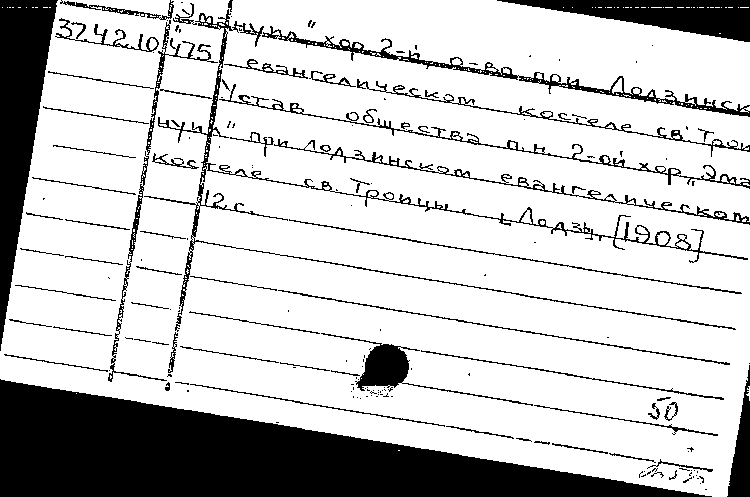 "Эмануил" хор 2-й, о-во при Лодзинск
37.42.10.475 евангелическом костеле св. Трои
Устав общества п.н. 2-ой хор „Эма
нуил" при лодзинском евангелическом
костеле св. Троицы. Лодзь, [1908]
12 с.
50